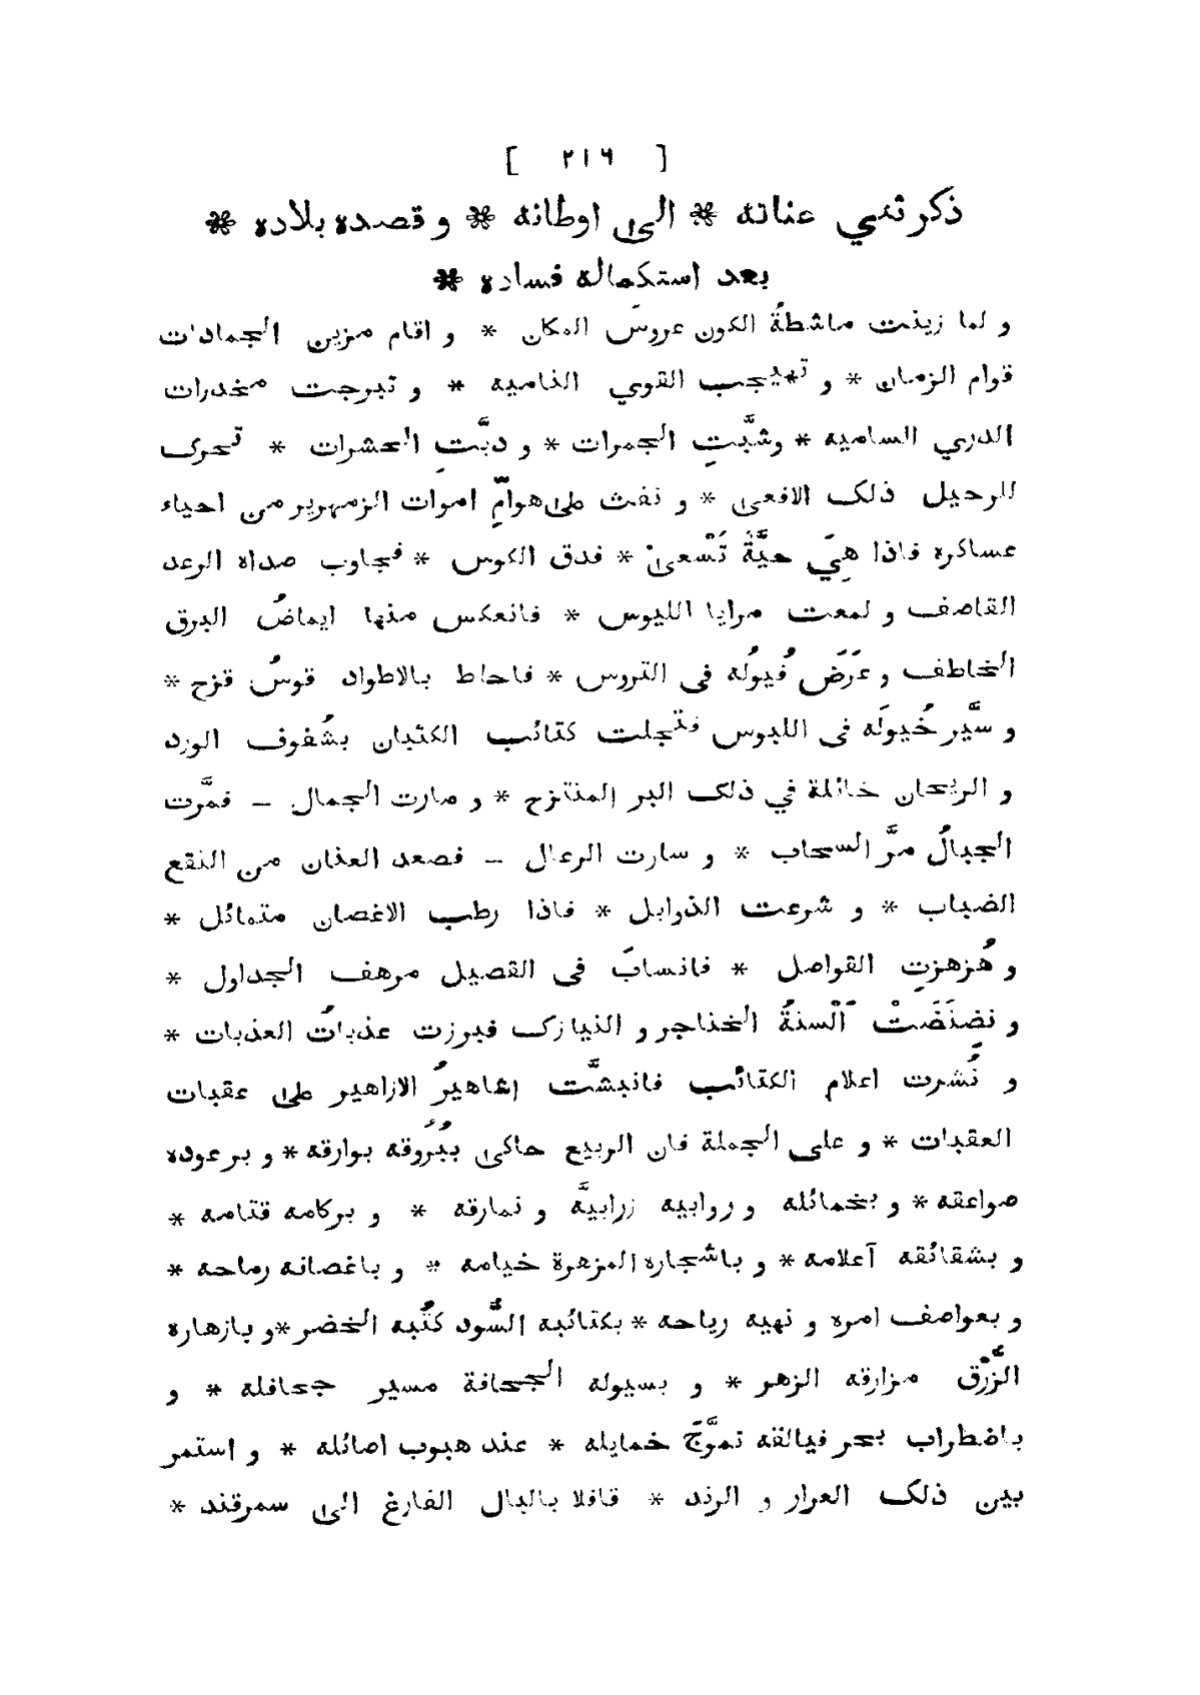 [ ٢١٦ ]
ذكر ثني عنانه * الى اوطانه * و قصده بلاده *
بعد استكماله فساده *
و لما زينت ماشطةُ الكون عروسَ المكان * و اقام مزين الجمادات
قوام الزمان * و تهيجت القوي النامية * و تبرجت مخدرات
الدري السامية * وشبَّتِ الجمرات * و دبَّتِ الحشرات * تحرك
للرحيل ذلك الافعى * و نفث على هوامِّ اموات الزمهرير من احياء
عساكره فاذا هِيَ حيَّةٌ تَسْعىٰ * فدق الكوس * فجاوب صداه الرعد
القاصف و لمعت مرايا اللبوس * فانعكس منها ايماضُ البرق
الخاطف و عَرَضَ فُيولُه فى التروس * فاحاط بالاطواد قوسُ قزح *
و سيَّر خُيولَه فى اللبوس فتجلت كتائب الكثبان بشُفوف الورد
و الريحان خائلة في ذلك البر المنتزح * و مارت الجمال _ فمرَّت
الجبالُ مرَّ السحاب * و سارت الرعال _ فصعد العنان من النقع
الضباب * و شرعت الذوابل * فاذا رطب الاغصان متمائل *
و هُزهزتِ القواصل * فانسابَ فى القصيل مرهف الجداول *
و نضنَضَتْ اَلْسنةُ الخناجر و النيازك فبرزت عذباتُ العذبات *
و نُشّرت اعلام الكتائب فانبشَّت اعاهيرُ الازاهير على عقبات
العقبات * و على الجملة فان الربيع حاكى ببُروقه بوارقه * و برعوده
صواعقه * و بخمائله و روابيه زرابيَّه و نمارقه * و بركامه قتامه *
و بشقائقه آعلامه * و باشجاره المزهرة خيامه * و باغصانه رماحه *
و بعواصف امره و نهيه رياحه * بكتائبه السُّود كتُبه الخضر *و بازهاره
الزُّرْق مزارقه الزهر * و بسيوله الجحافة مسير جحافله * و
باضطراب بحر فيالقه تموَّجَ خمايله * عند هبوب اصائله * و استمر
بين ذلك العرار و الرند * قافلا بالبال الفارغ الى سمرقند *